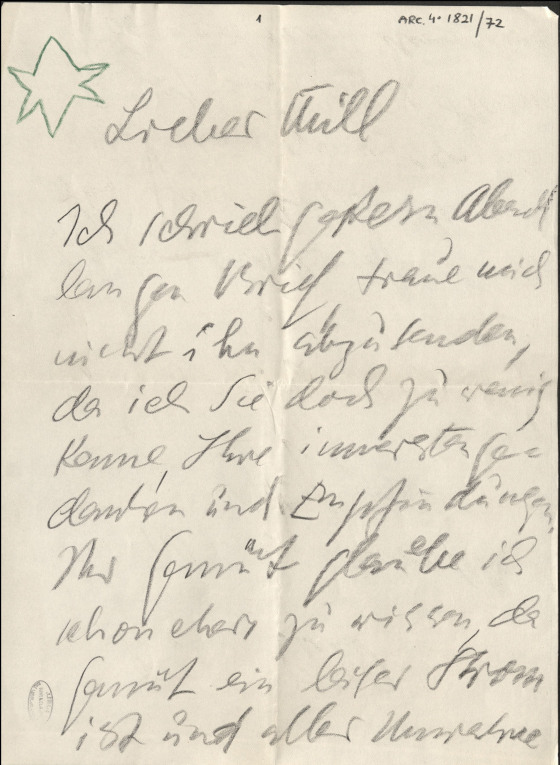 1
ARC. 4° 1821/72
Lieber Mill
Ich schrieb gestern Abend
langen Brief, traue mich
nicht ihn abzusenden,
da ich Sie doch zu wenig
kenne, Ihre innersten Ge=
danken und Empfindungen.
Ihr Gemüt glaube ich
schon eher zu wissen, da
Gemüt ein leiser Strom
ist und aller Umnahme